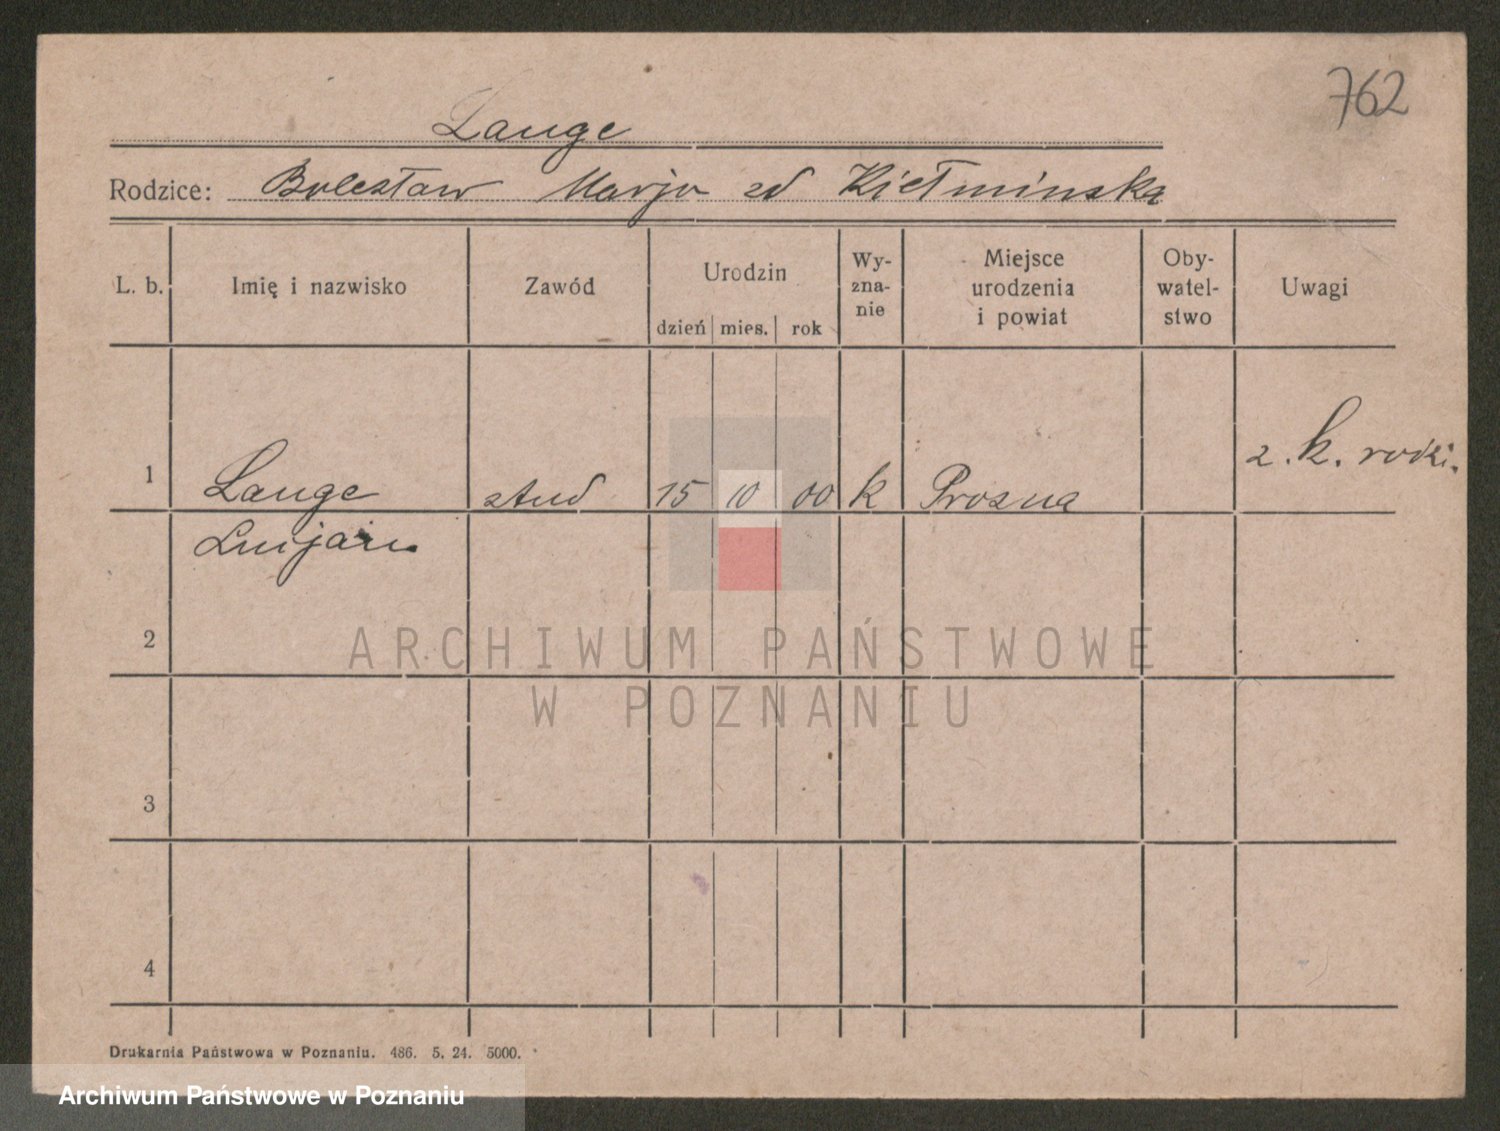 762
Lange
Rodzice: Bolesław Marja zd Kiełmińska
L. b. Imię i nazwisko Zawód Urodzin Wy-zna-nie Miejsce urodzenia i powiat Oby-watel-stwo Uwagi
dzień mies. rok
1 Lange stud 15 10 00 k Prosna z. k. rodzi.
2
3
4
ARCHIWUM PAŃSTWOWE
W POZNANIU
Drukarnia Państwowa w Poznaniu. 486. 5. 24. 5000.
Archiwum Państwowe w Poznaniu